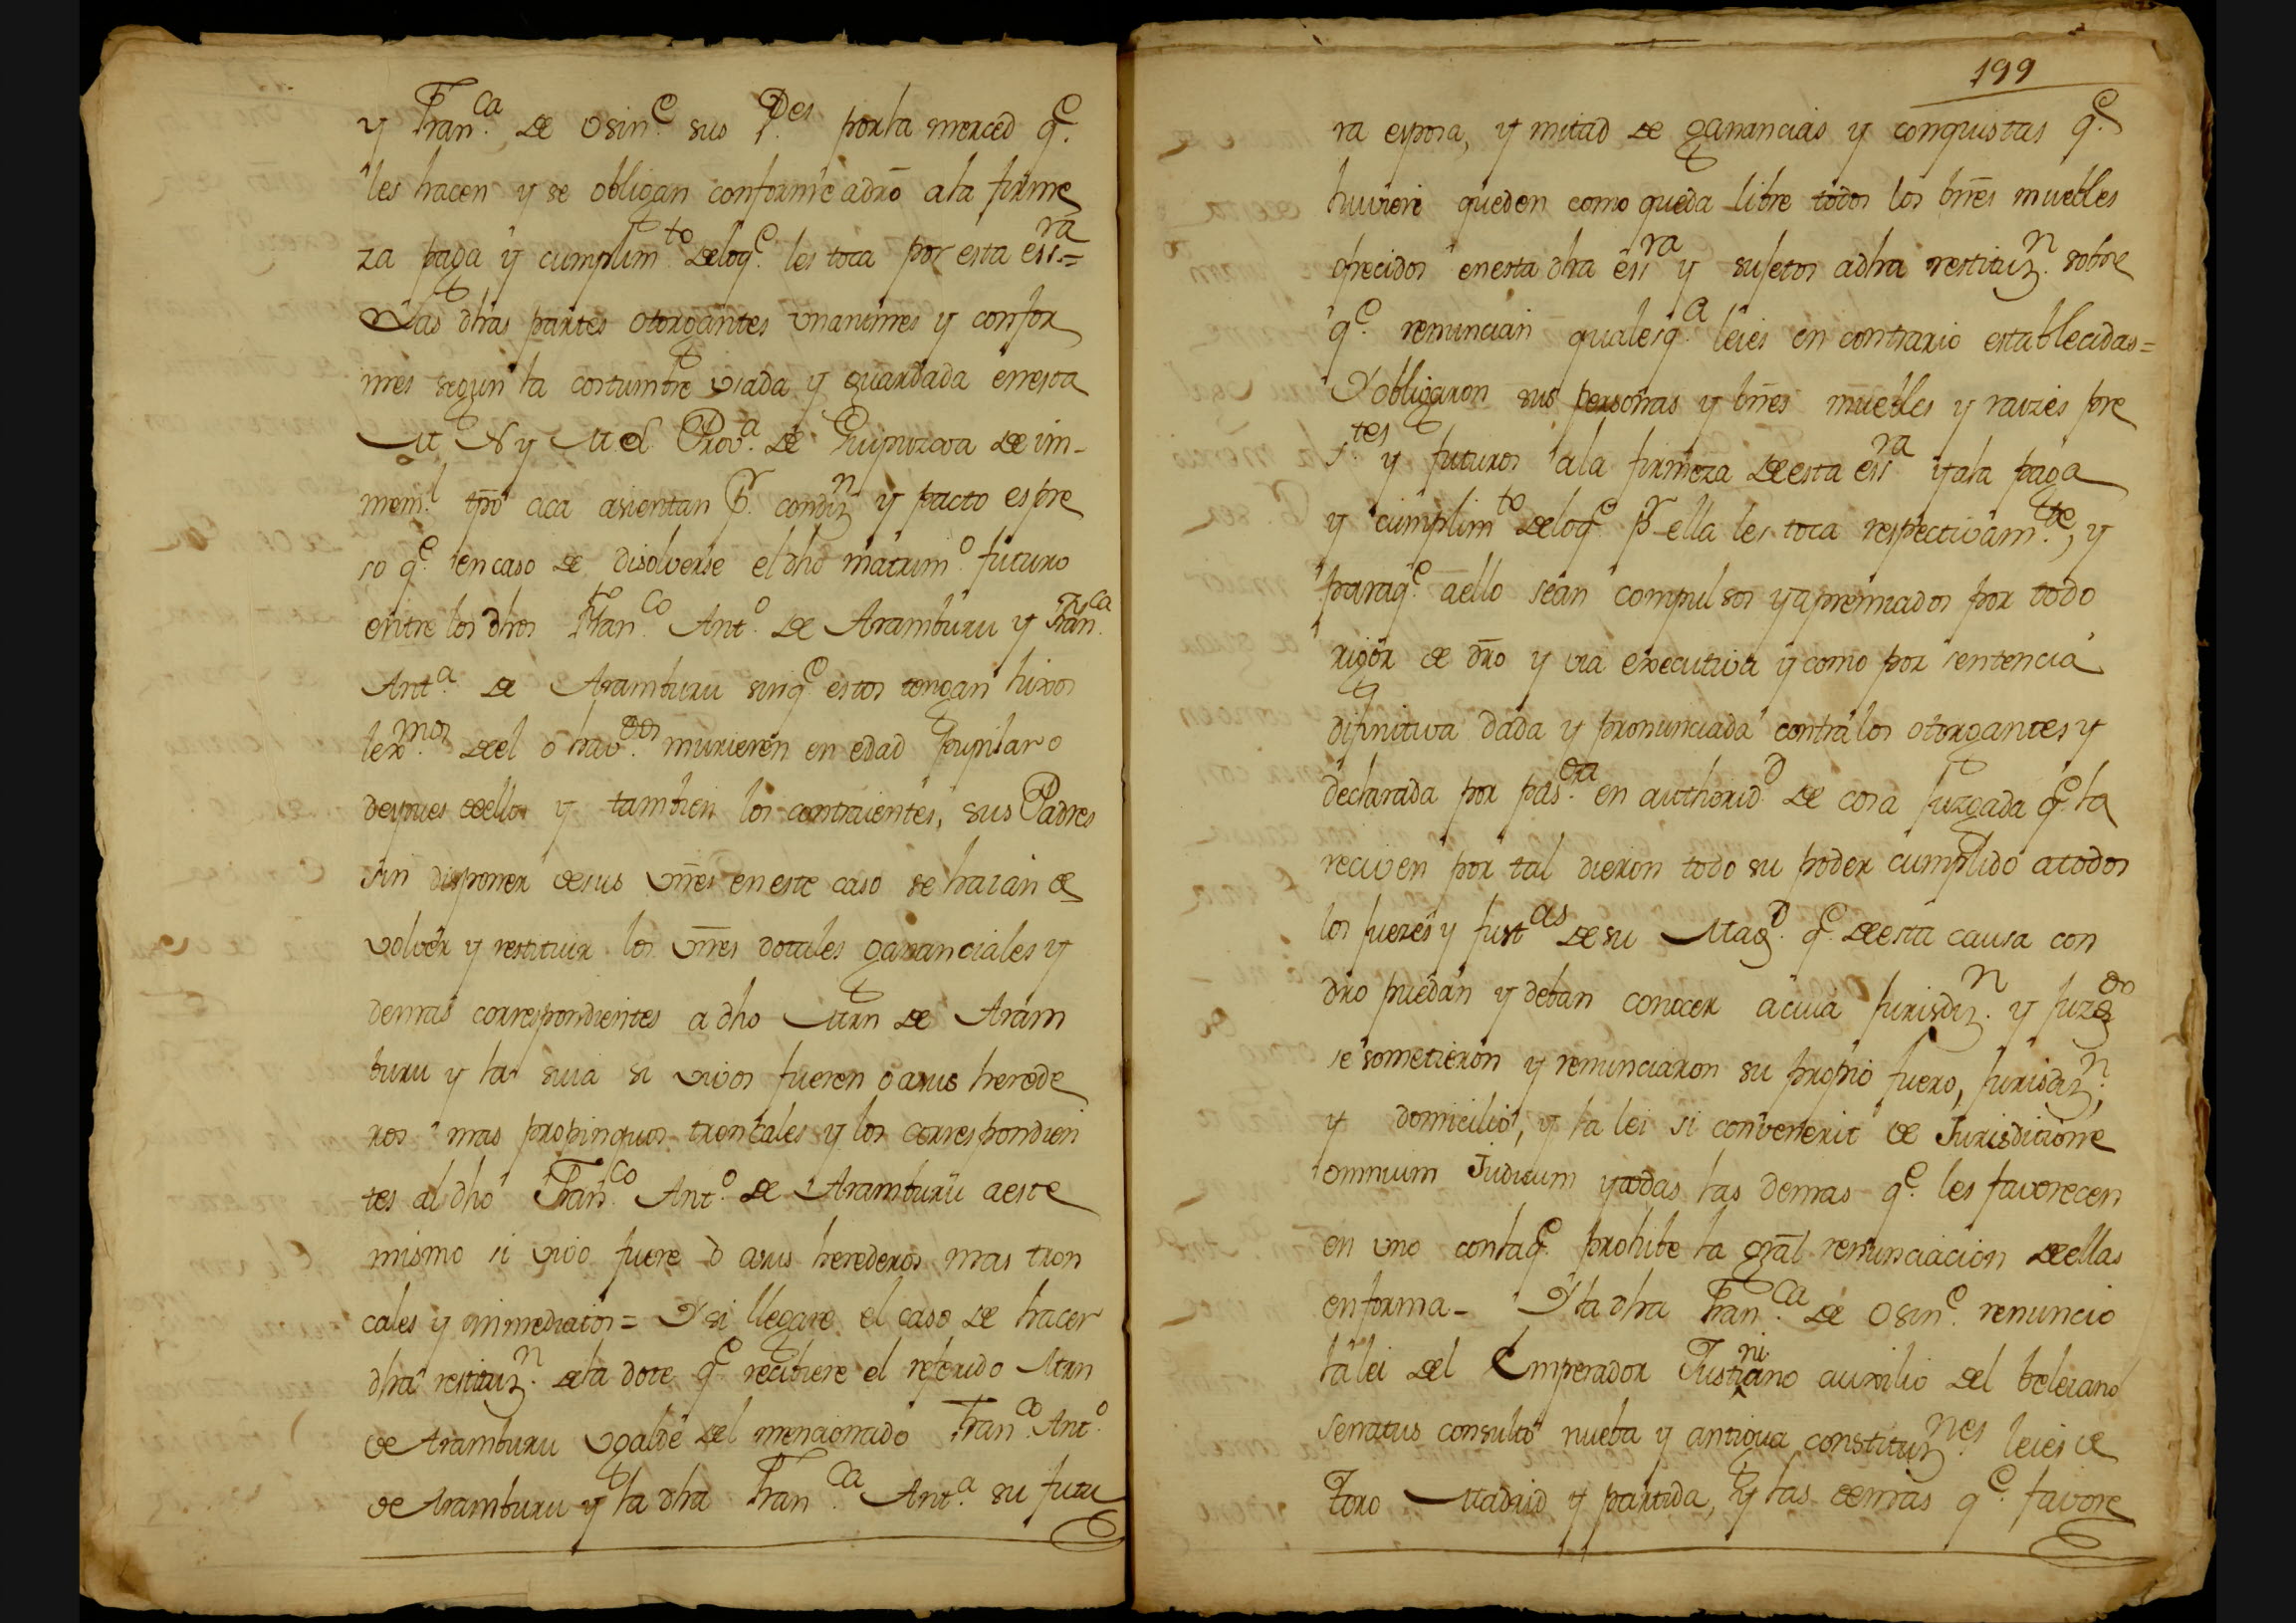 y Fran.ca de Osin.e sus P.des por la merced q.e
les hacen y se obligan conforme a dro a la firme
za paga y cumplim.to de loq.e les toca por esta ess.ra=
Las dhas partes otorgantes vnanimes y confor
mes segun la costumbre vsada y guardada en esta
M N y M el Prov.a de Guipuzcoa de im-
mem.l tpo aca asientan p.r condiz.n y pacto espre
so q.e en caso de disolverse el dho matrim.o futuro
entre los dhos Fran.co Ant.o de Aramburu y Fran.ca
Ant.a de Aramburu sin q.e estos tengan hixos
lex.mos de el o hav.dos murieren en edad pupilar o
despues de ellos y tambien los contraientes, sus Padres
sin disponer de sus vnes en este caso se haian de
volver y restituir los vnes dotales gananciales y
demas correspondientes a dho Mrn de Aram
buru y la suia si vivos fueren o a sus herede
ros mas propinquos troncales y los correspondien
tes al dho Fran.co Ant.o de Aramburu a este
mismo si vivo fuere o a sus herederos mas tron
cales y inmediatos = Y si llegare el caso de hacer
dha restituz.n de la dote q.e recibiere el referido Mrn
de Aramburu Vgalde del mencionado Fran.co Ant.o
de Aramburu y la dha Fran.ca Ant.a su futu
199
ra esposa, y mitad de ganancias y conquistas q.e
huviere queden como queda libre todos los bnes muebles
ofrecidos en esta dha ess.ra y sujetos a dha restituz.n sobre
q.e renuncian qualesq.a leies en contrario establecidas=
Y obligaron sus personas y bnes muebles y raizes pre
s.tes y futuros a la firmeza de esta ess.ra y a la paga
y cumplim.to de loq.e p.r ella les toca respectivam.te, y
paraq.e a ello sean compulsos y apremiados por todo
rigor de dro y via executiva y como por sentencia
difinitiva dada y pronunciada contra los otorgantes y
declarada por pas.da en authorid.d de cosa juzgada q.e la
reciven por tal dieron todo su poder cumplido a todos
los jueses y just.as de su Mag.d q.e de esta causa con
dro puedan y deban conocer a cuia jurisdiz.n y juzg.do
se sometieron y renunciaron su propio fuero, jurisdiz.n,
y domicilio, y la lei si convenerit de Jurisditione
omnium Judicum y todas las demas q.e les favorecen
en vno con laq.e prohibe la gral renunciacion de ellas
en forma- Y la dha Fran.ca de Osin.e renuncio
la lei del Emperador Justiniano auxilio del beleiano
senatus consulto nueba y antigua constituz.nes leies de
Toro Madrid y partida, y las demas q.e favore